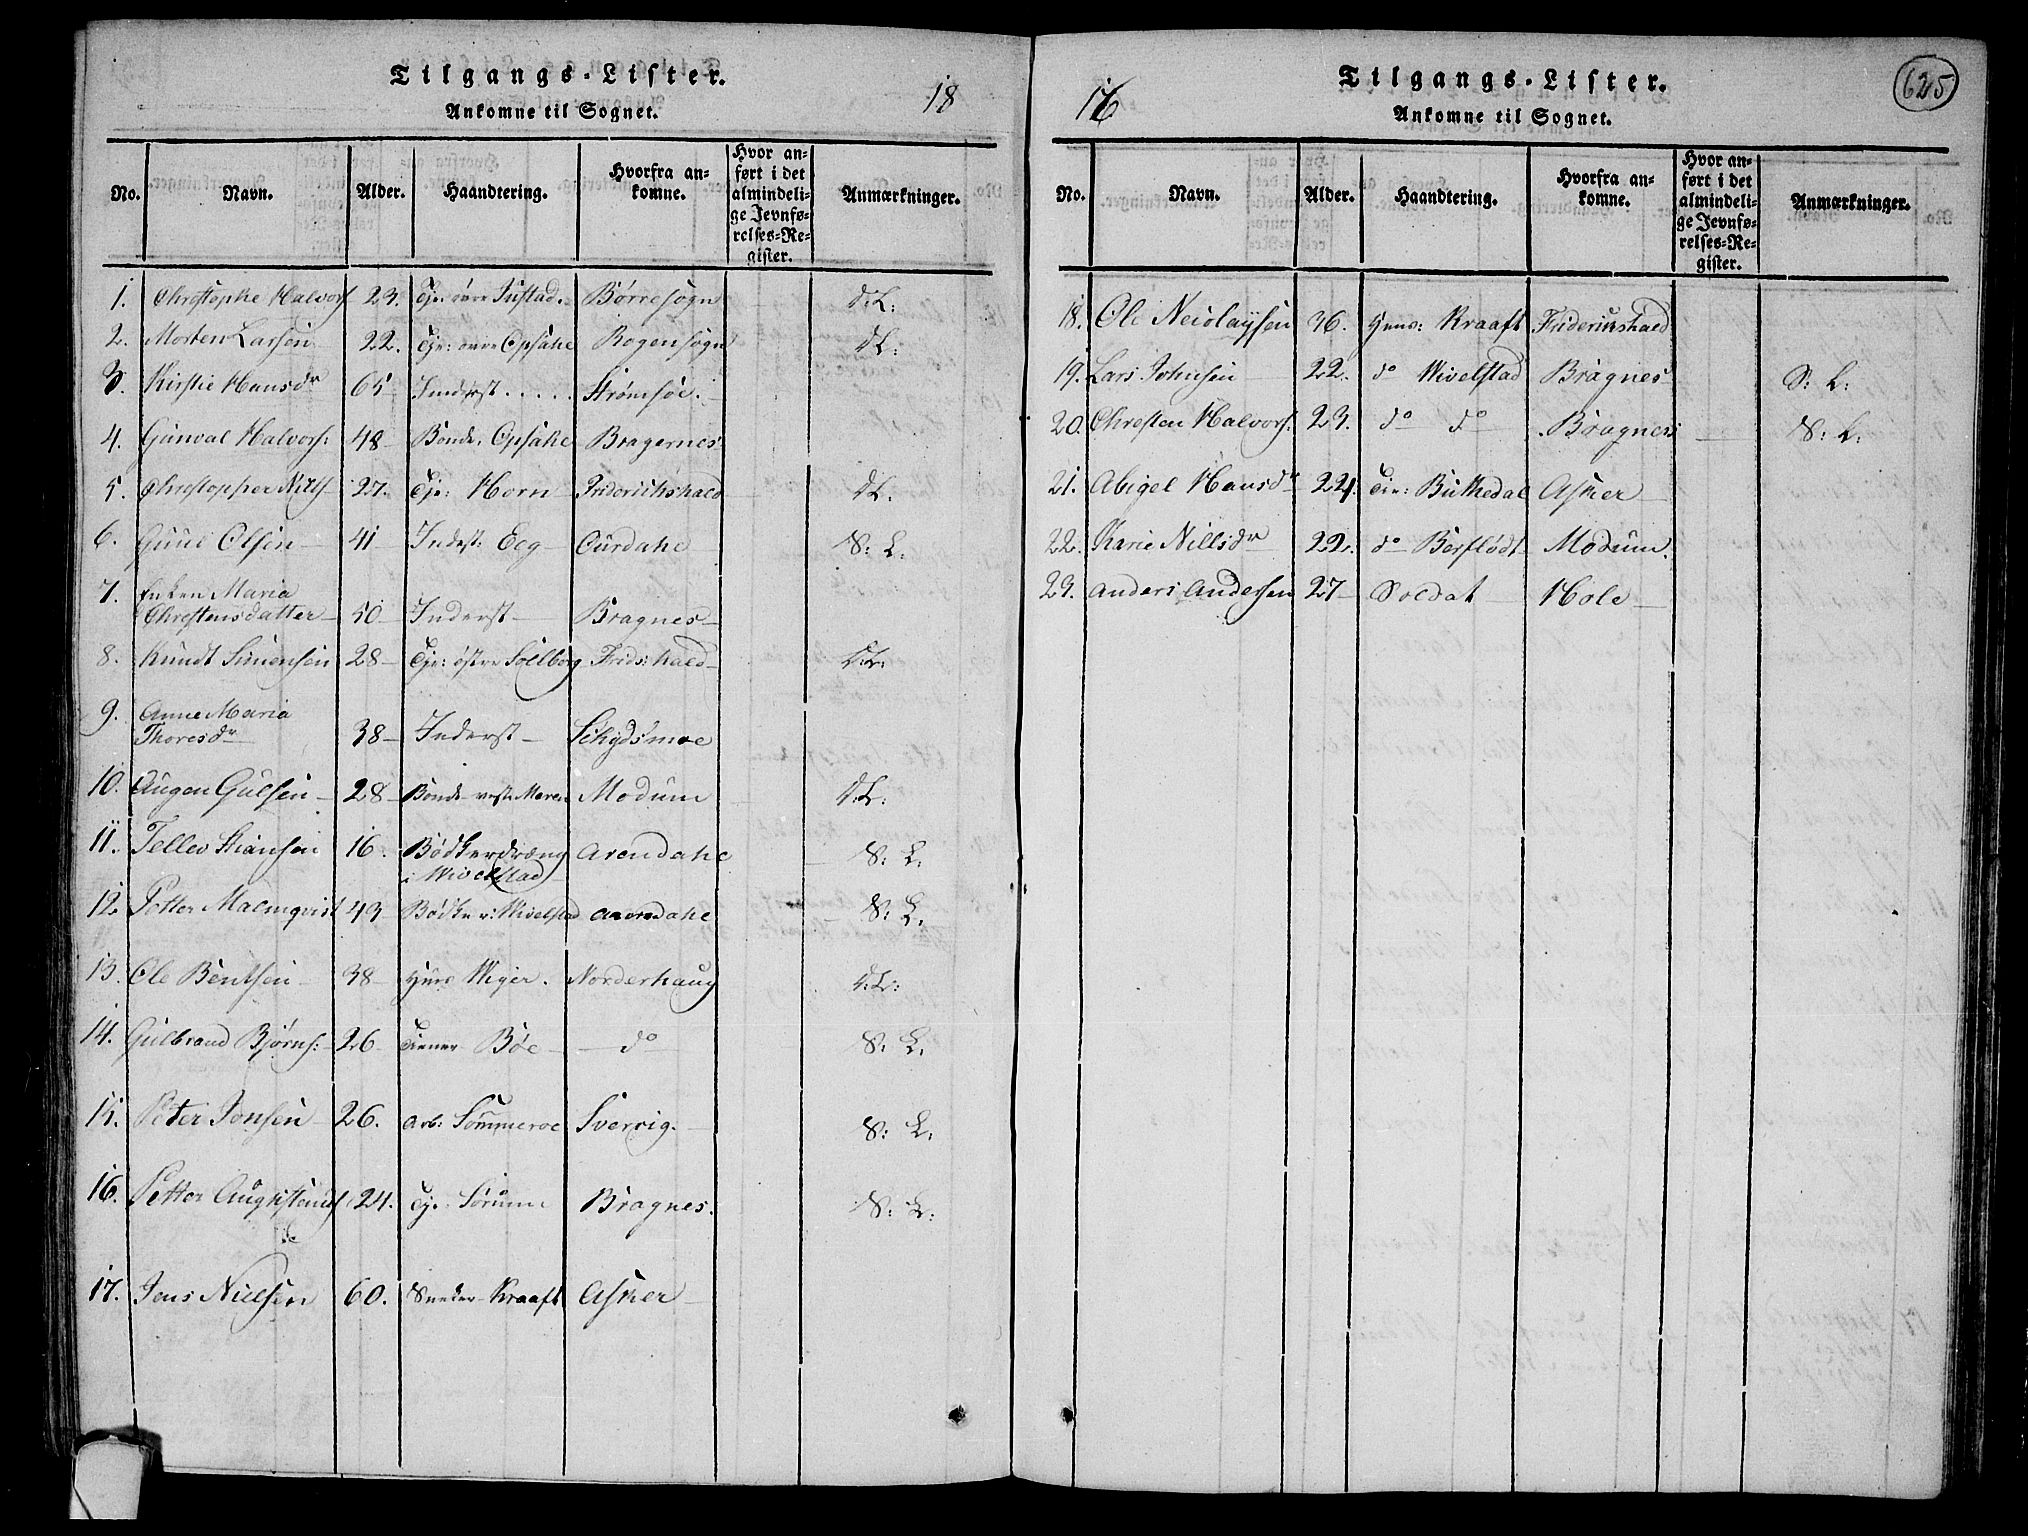 Tilgangs-Lister.
Ankomne til Sognet.
18
No.
Navn.
Alder.
Haandtering.
Hvorfra an-
komne.
Hvor an-
ført i det
almindeli-
ge Jevnfø-
relses-Re-
gister.
Anmærkninger.
1. Christophe Halvors. 23. Tje: øvre Justad. Børresogn d: L:
2. Morten Larsen 22. Tje: øvre Opsahe Rogensogn d L:
3. Kirstie Hansdr 65 Inderst Strømsøe.
4. Gunval Halvors: 48 Bonde. Opsahe Bragernes
5. Christopher Niels 27. Tje: Horn Friderichshald d L:
6. Guul Olsen 41 Inderst: Eeg Ourdahe S: L:
7. Enken Maria
Christensdatter 50 Inderst Bragnes
8. Knudt Simensen 28 Tje: østre Solberg Frids:hald d: L:
9. Anne Maria
Thoresdr 38 Inderst Schydsmoe
10. Augen Gulsen 28 Bonde vest: Meren Modum d: L:
11. Tellev Stiansen 16. Bødkerdræng Arendahe S: L:
i Wivelstad
12. Petter Malmqvist 43 Bødker: Wivelstad Arendahe S: L:
13. Ole Bentsen 38 Huus Wiger. Norderhaug d: L:
14. Gulbrand Bjørns: 26 Tiener Bøe do S: L:
15. Peter Jonsen 26. Arb: Sommeroe Sverrig. S: L:
16. Petter 24. Tje. Sørum Bragnes. S: L:
17. Jens Nielsen 60. Sneker Kraaft Asker
Tilgangs-Lister.
Ankomne til Sognet.
16
625
No.
Navn.
Alder.
Haandtering.
Hvorfra an-
komne.
Hvor an-
ført i det
almindeli-
ge Jevnfø-
relses-Re-
gister.
Anmærkninger.
18. Ole Neiolaysen 36. Huus: Kraaft Friderichshald
19. Lars Johnsen 22. do Wivelstad Bragnes S: L:
20. Christen Halvors: 23. do do Bragnes S: L:
21. Abigel Hansdr 24. Tie: Buthedal Asker
22. Karie Nillsdr 22. do Berflødt Modum.
23. Anders Andersen 27 Soldat Hole